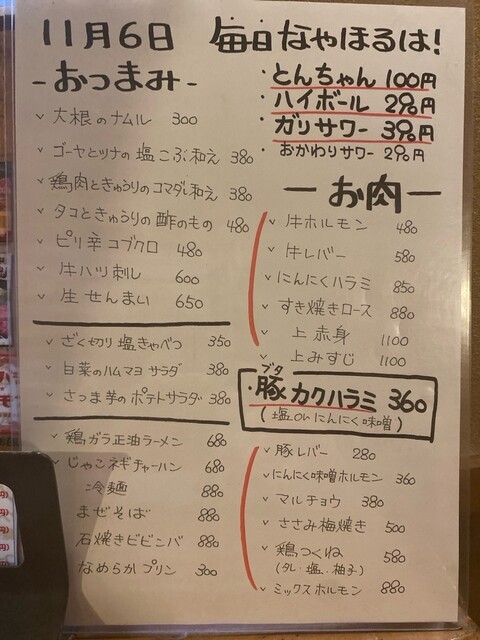 11月6日 毎日なやほるは!
-おつまみ-
・とんちゃん 100円
・ハイボール 290円
・ガリサワー 390円
・おかわりサワー 290円
✓ 大根のナムル 300
✓ ゴーヤとツナの塩こぶ和え 380
✓ 鶏肉ときゅうりのコマダレ和え 380
✓ タコときゅうりの酢のもの 480
✓ ピリ辛コブクロ 480
✓ 牛ハツ刺し 600
✓ 生せんまい 650
✓ ざく切り塩きゃべつ 350
✓ 白菜のハムマヨサラダ 380
✓ さつま芋のポテトサラダ 380
✓ 鶏ガラ正油ラーメン 680
✓ じゃこネギチャーハン 680
冷麺 880
まぜそば 880
石焼きビビンバ 880
なめらかプリン 300
-お肉-
✓ 牛ホルモン 480
✓ 牛レバー 580
✓ にんにくハラミ 850
✓ すき焼きロース 880
✓ 上赤身 1100
✓ 上みすじ 1100
ブタ
・豚カクハラミ 360
(塩orにんにく味噌)
✓ 豚レバー 280
✓ にんにく味噌ホルモン 360
✓ マルチョウ 380
✓ ささみ梅焼き 500
✓ 鶏つくね 580
(タレ・塩・柚子)
✓ ミックスホルモン 880